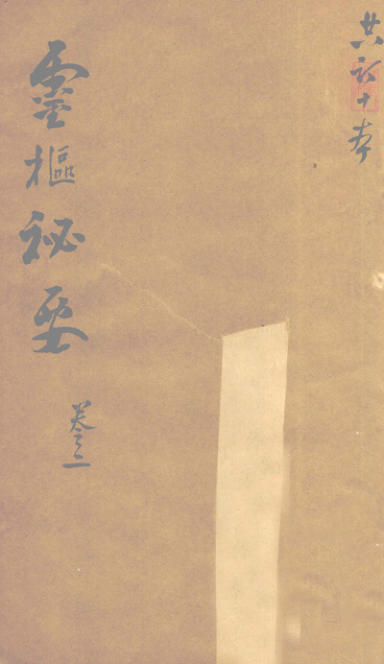 共計十本
靈樞秘要
卷之二